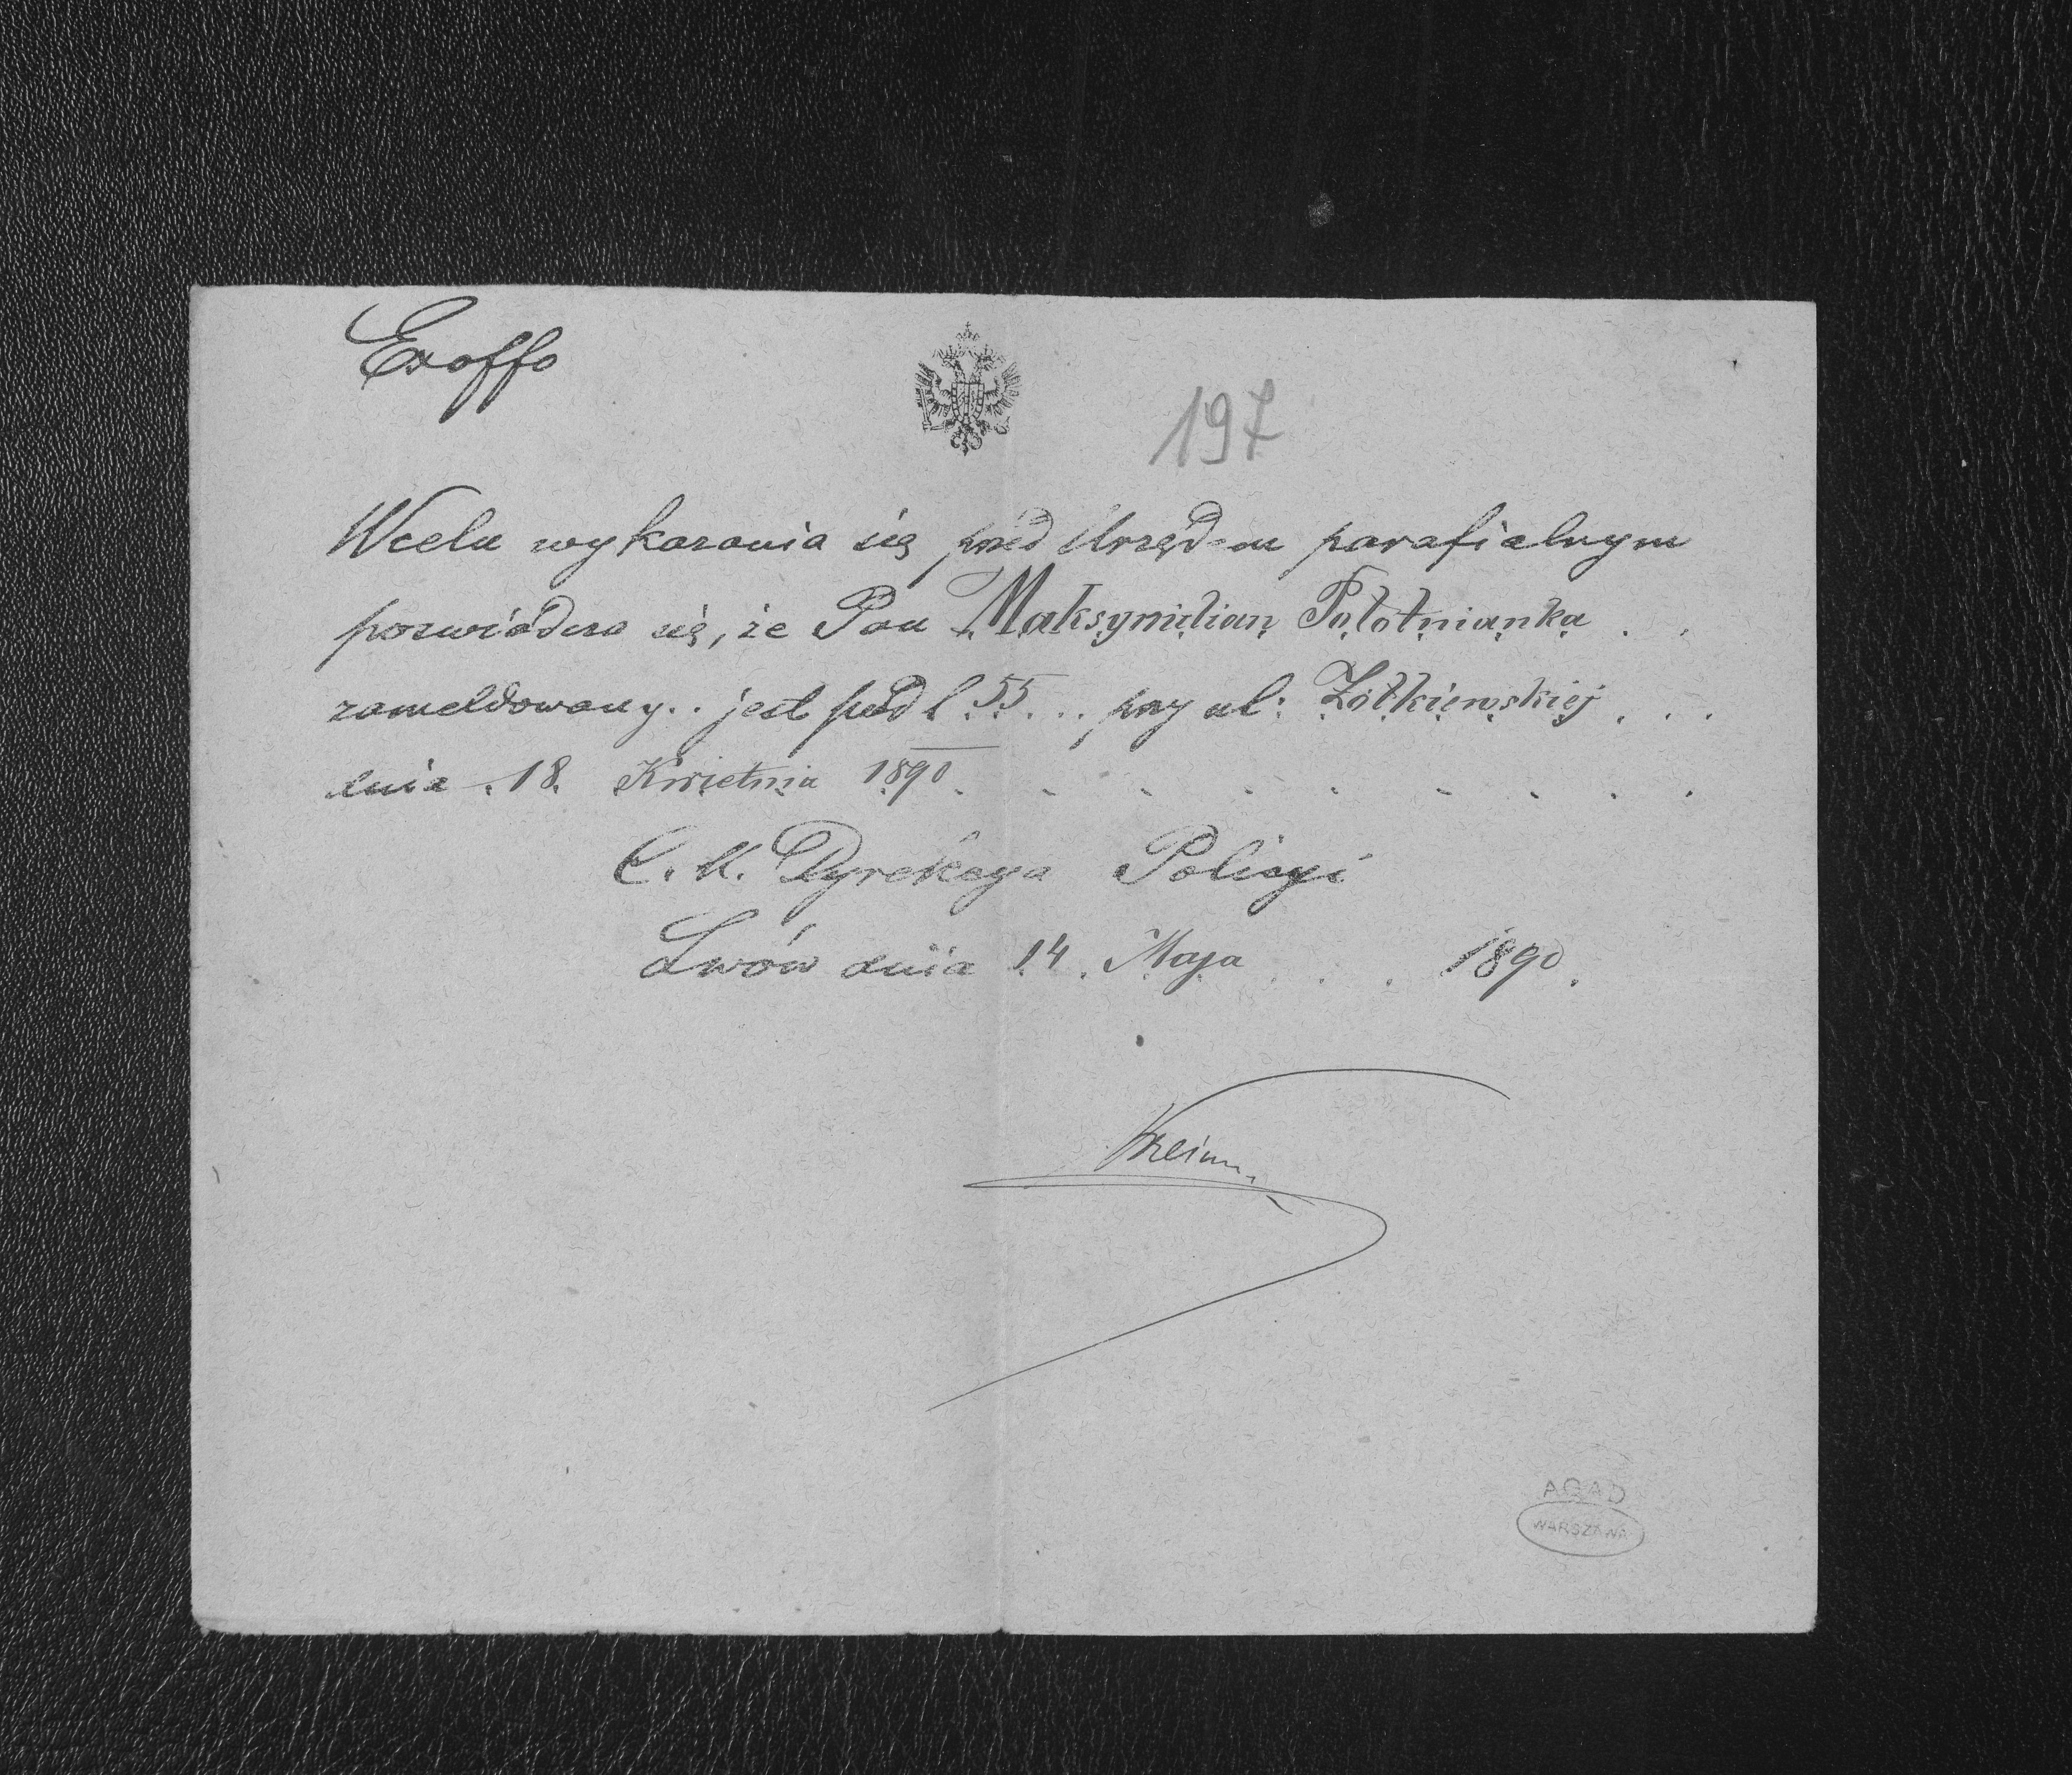 Exoffo
197
W celu wykazania się przed Urzędem parafialnym
poświadcza się, że Pan Maksymilian Połotnianka . .
zameldowany . . jest pod l. 55 . . . przy ul: Żółkiewskiej . . .
dnia . 18. Kwietnia 1890 . . . . . . . . .
C. K. Dyrekcya Policyi
Lwów dnia 14. Maja . . . 1890.
AGAD
WARSZAWA